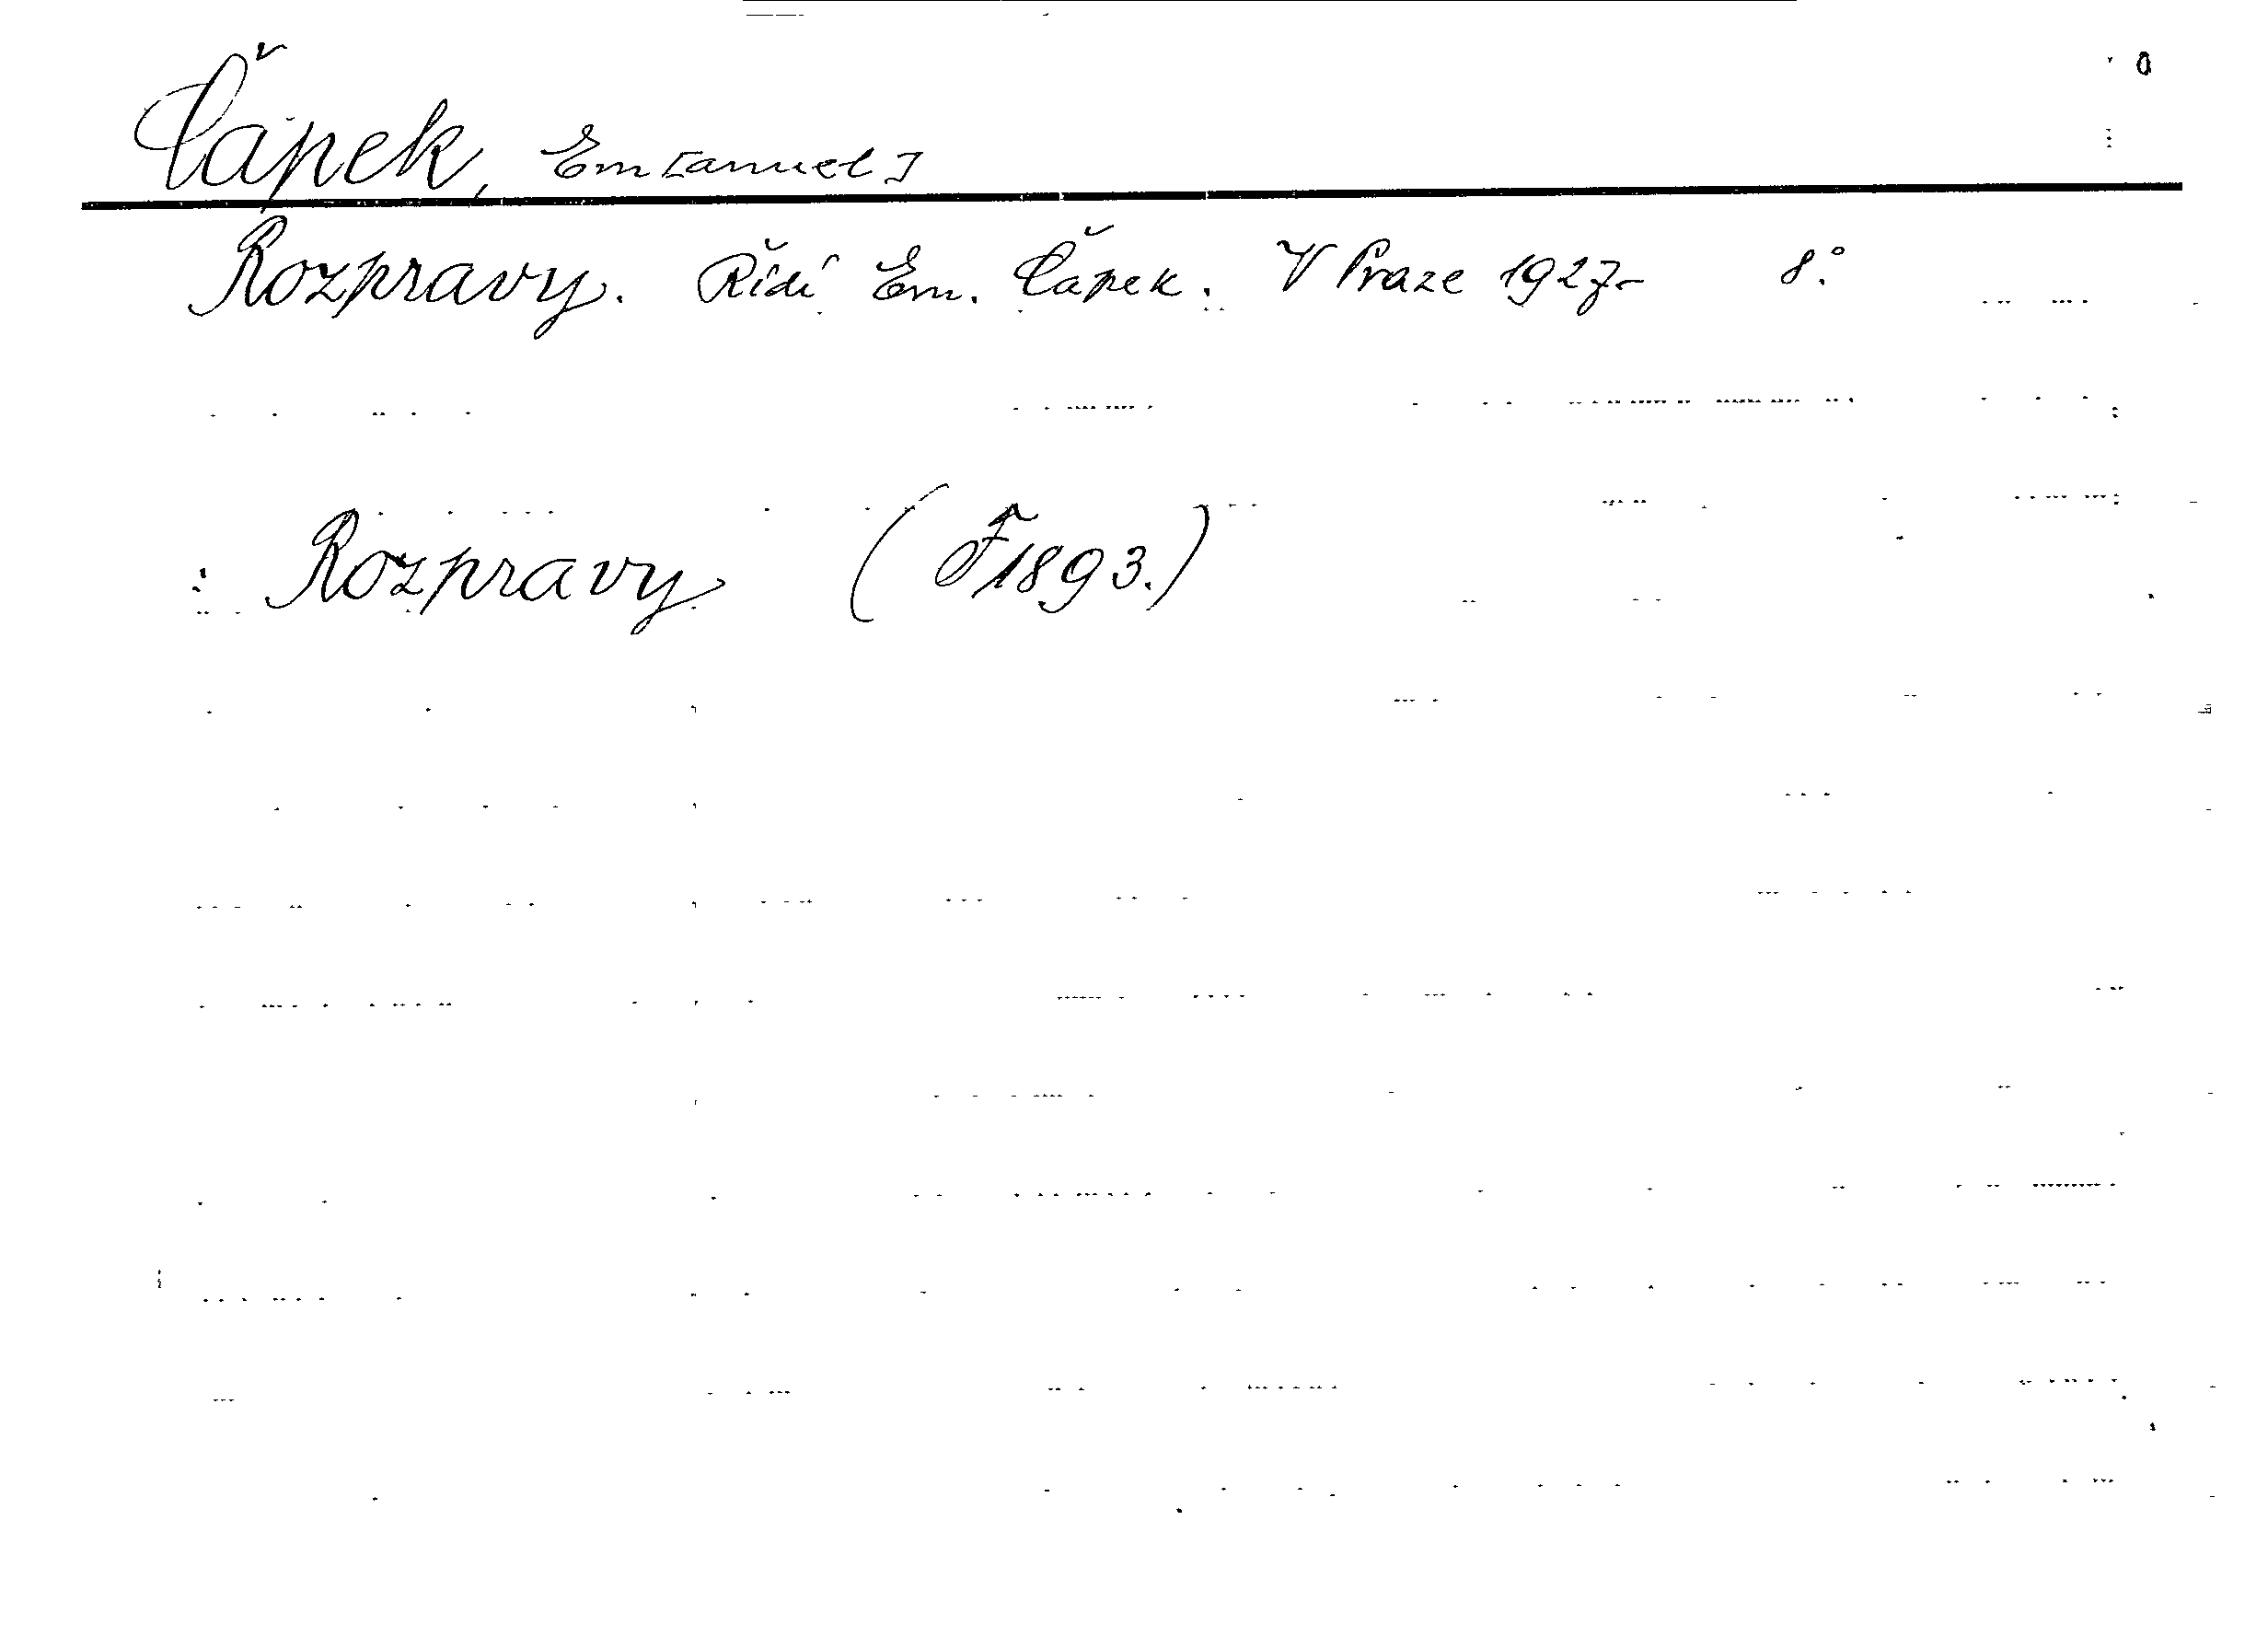 Čápek, Em[anuel]
Rozpravy. Řídí Em. Čápek. V Praze 1927- 8°.
Rozpravy (F 1893.)